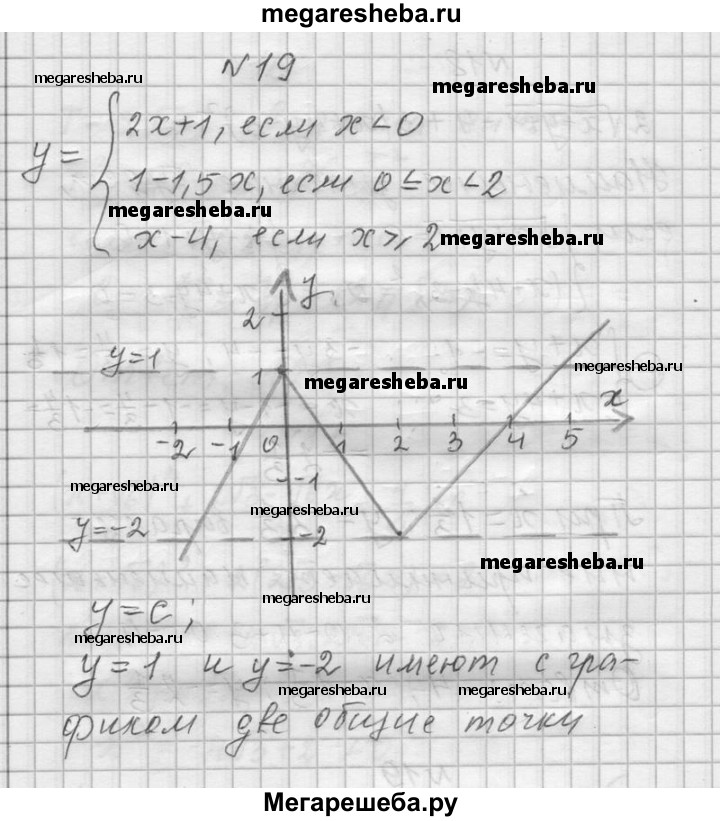 megaresheba.ru
N 19
megaresheba.ru
megaresheba.ru
y = { 2x+1, если x < 0
1-1,5x, если 0 ≤ x < 2
megaresheba.ru
x-4, если x ⩾ 2
megaresheba.ru
y
2
y=1
1
megaresheba.ru
megaresheba.ru
x
-2 -1 0 1 2 3 4 5
-1
megaresheba.ru
megaresheba.ru
y=-2
-2
megaresheba.ru
megaresheba.ru
y=c;
megaresheba.ru
y=1 и y=-2 имеют с гра-
megaresheba.ru
megaresheba.ru
фиком две общие точки
Мегарешеба.ру